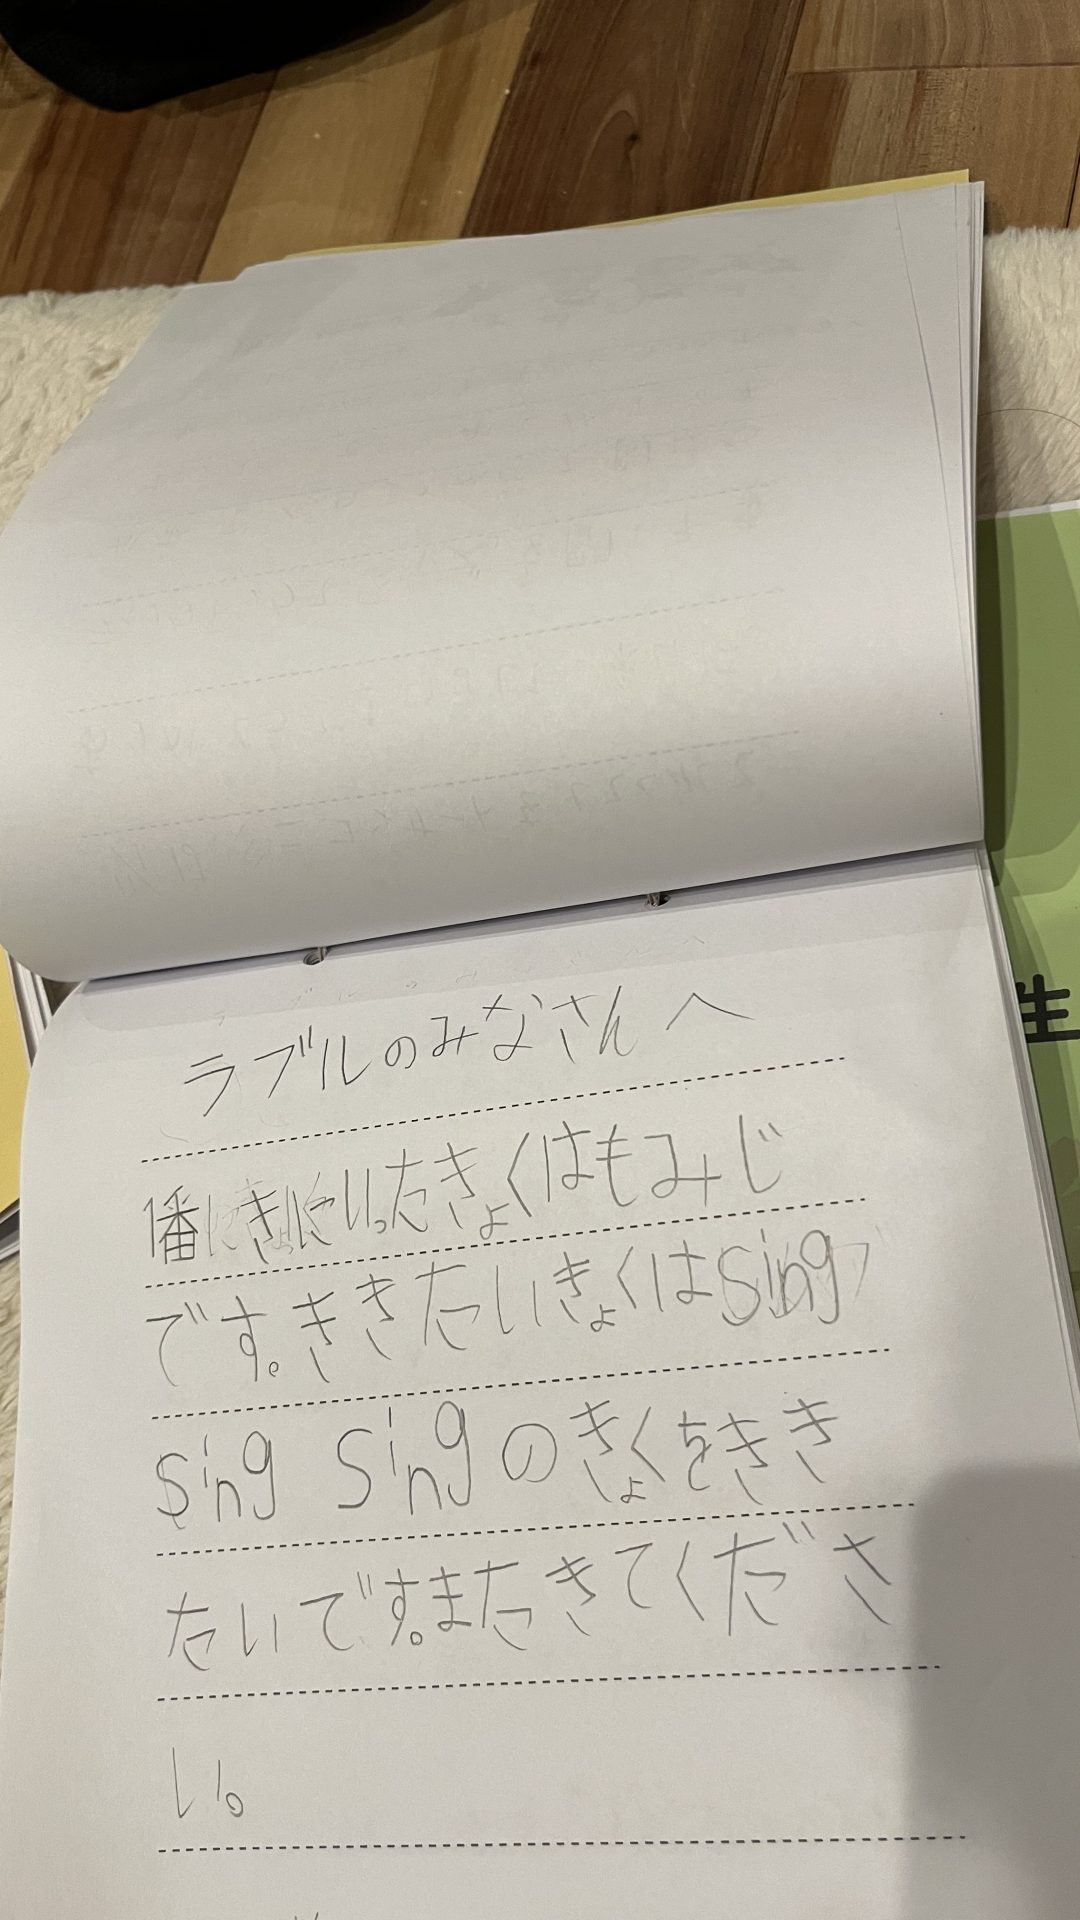 ラブルのみなさんへ
1番きにいったきょくはもみじ
です。ききたいきょくはsing
sing singのきょくをきき
たいです。またきてくださ
い。
生